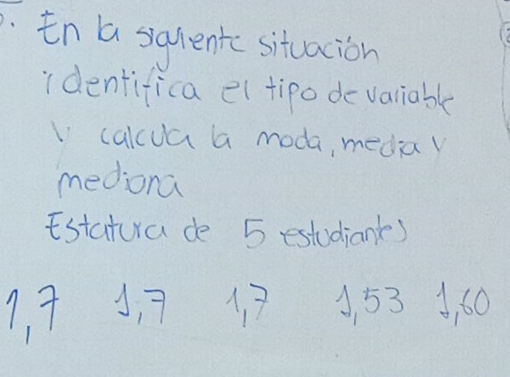 En la siguiente situación
identifica el tipo de variable
y calcula la moda, media y
mediana
Estatura de 5 estudiantes
1,7 1,7 1,7 1,53 1,60